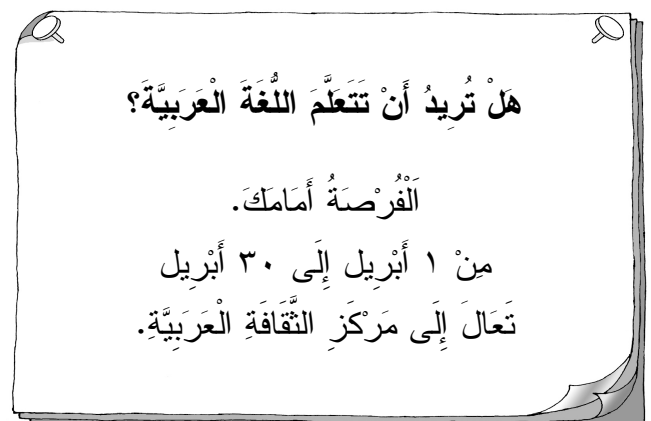 هَلْ تُرِيدُ أَنْ تَتَعَلَّمَ اللُّغَةَ الْعَرَبِيَّةَ؟
اَلْفُرْصَةُ أَمَامَكَ.
مِنْ ١ أَبْرِيل إِلَى ٣٠ أَبْرِيل
تَعَالَ إِلَى مَرْكَزِ الثَّقَافَةِ الْعَرَبِيَّةِ.